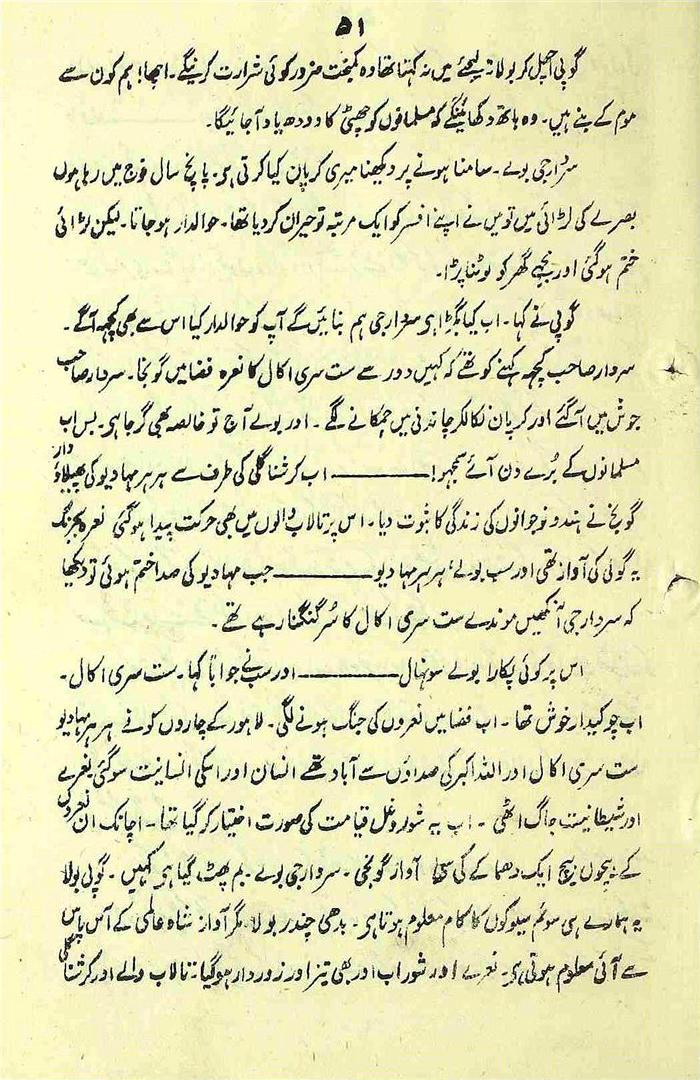 ۵۱
گوپی اچھل کر بولا۔ لیجئے میں نہ کہتا تھا وہ کمبخت ضرور کوئی شرارت کرینگے۔ اچھا! ہم کون سے
موم کے بنے ہیں۔ وہ ہاتھ دکھائینگے کہ مسلمانوں کو چھٹی کا دودھ یاد آجائیگا۔
سردار جی بولے۔ سامنا ہونے پر دیکھنا میری کرپان کیا کرتی ہی۔ پانچ سال فوج میں رہا ہوں
بصرے کی لڑائی میں تو میں نے اپنے افسر کو ایک مرتبہ تو حیران کر دیا تھا۔ حوالدار ہو جاتا۔ لیکن لڑائی
ختم ہوگئی اور مجھے گھر کو لوٹنا پڑا۔
گوپی نے کہا۔ اب کیا بگڑا ہی سردار جی ہم بنائیں گے آپ کو حوالدار کیا اس سے بھی کچھ آگے۔
سردار صاحب کچھ کہنے کو تھے کہ کہیں دور سے ست سری اکال کا نعرہ فضا میں گونجا۔ سردار صاحب
جوش میں آگئے اور کرپان نکالکر چاندنی میں چمکانے لگے۔ اور بولے آج تو خالصہ بھی گرجا ہی۔ بس اب
مسلمانوں کے بُرے دن آئے سمجھو! ——— اب کرشنا گلی کی طرف سے ہر ہر مہادیو کی پھیلاؤ دار
گونج نے ہندو نوجوانوں کی زندگی کا ثبوت دیا۔ اس پر تالاب والوں میں بھی حرکت پیدا ہوگئی نعرہ بجرنگ
یہ گوپی کی آواز تھی اور سب بولے ہر ہر مہادیو ——— جب مہادیو کی صدا ختم ہوئی تو دیکھا
کہ سردار جی آنکھیں موندے ست سری اکال کا سُر گنگنا رہے تھے۔
اس پر کوئی پکارا بولے سونہال ——— اور سب نے جواباً کہا۔ ست سری اکال۔
اب چوکیدار خوش تھا۔ اب فضا میں نعروں کی جنگ ہونے لگی۔ لاہور کے چاروں کونے ہر ہر مہادیو
ست سری اکال اور اللہ اکبر کی صداؤں سے آباد تھے انسان اور اسکی انسانیت سو گئی نعرے
اور شیطانیت جاگ اٹھی۔ اب یہ شور و غل قیامت کی صورت اختیار کر گیا تھا۔ اچانک ان نعروں
کے بیچوں بیچ ایک دھماکے کی سی آواز گونجی۔ سردار جی بولے۔ بم پھٹ گیا ہی کہیں۔ گوپی بولا
یہ ہمارے ہی سوئم سیوکوں کا کام معلوم ہوتا ہی۔ بدھی چندر بولا مگر آواز شاہ عالمی کے آس پاس
سے آئی معلوم ہوتی ہی۔ نعرے اور شور اب اور بھی تیز اور زوردار ہوگیا۔ تالاب والے اور کرشنا گلی